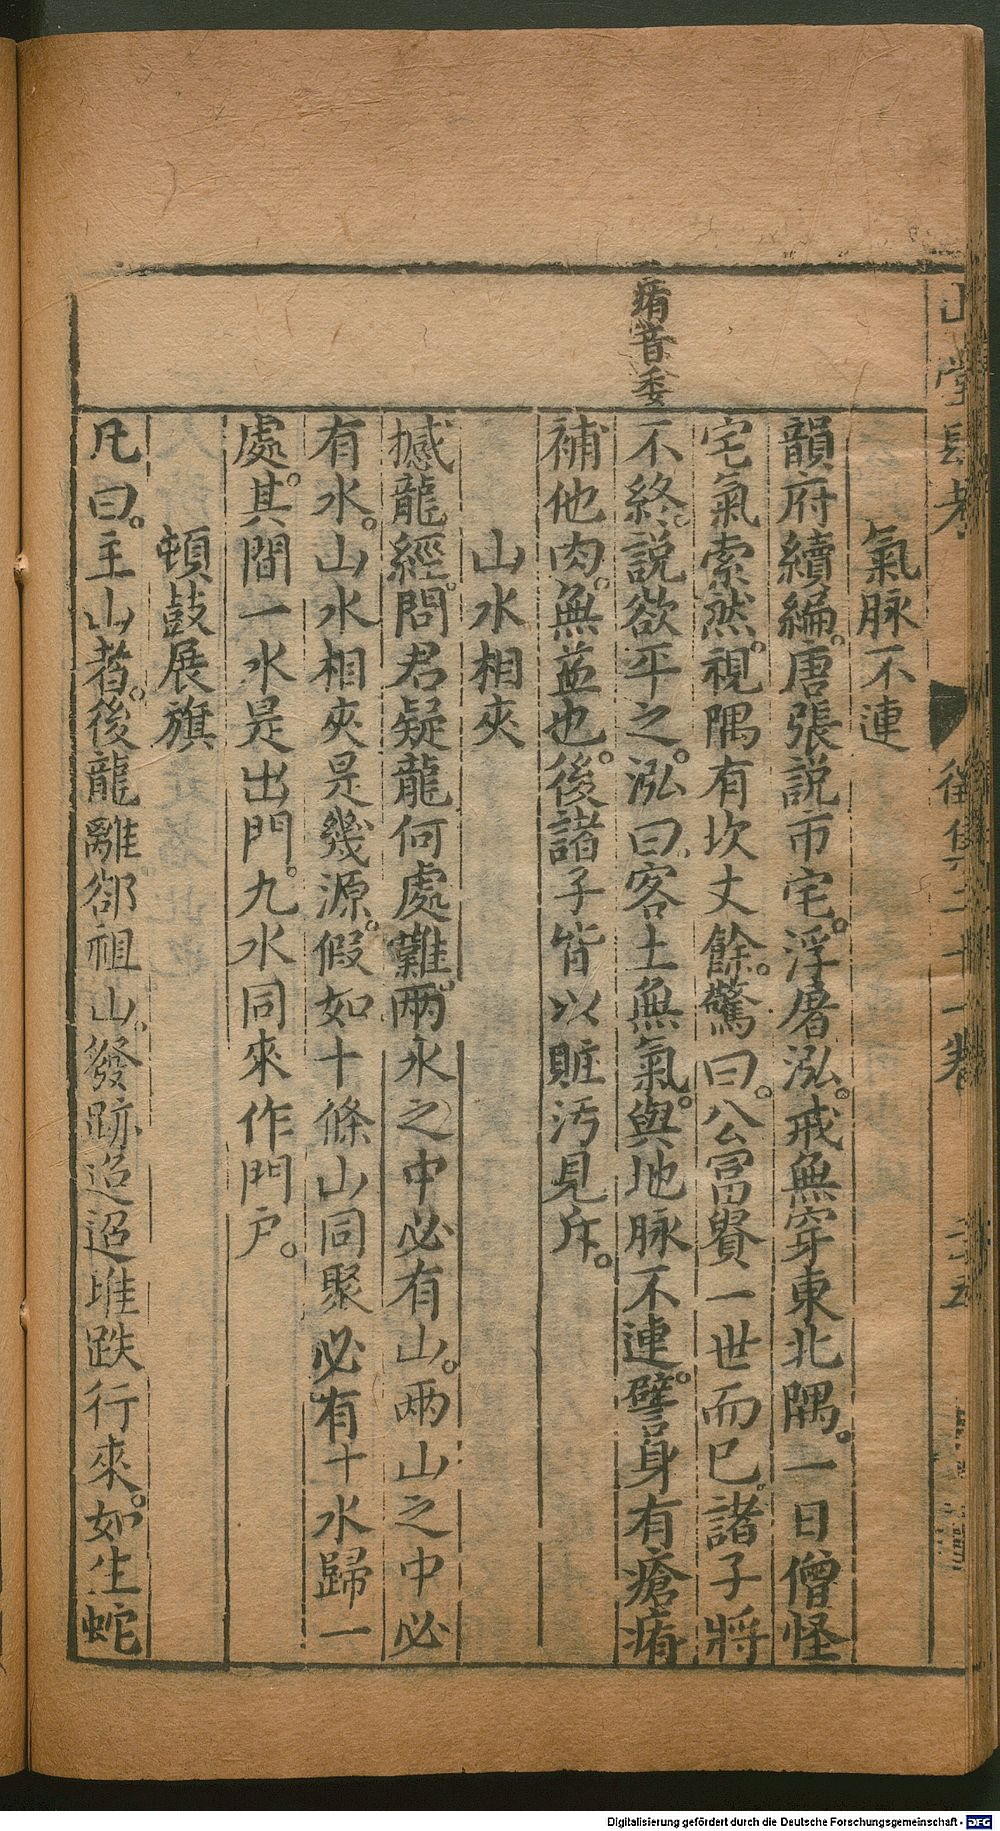 山堂肆考
氣脉不連
韻府續編。唐張説帀宅。浮屠泓。戒無穿東北隅。一日僧怪
宅氣索然。視隅有坎丈餘。驚曰。公冨貴一世而已。諸子將
不終。説欲平之。泓曰客土無氣。與地脉不連。譬身有瘡痏
痏音委
補他肉。無益也。後諸子皆以賍污見斥。
山水相夾
撼龍經。問君疑龍何處難。兩水之中必有山。兩山之中必
有水。山水相夾是幾源。假如十條山同聚必有十水歸一
處。其間一水是出門。九水同來作門户。
頓鼓展旗
凡曰。主山者。後龍離郤祖山。發跡迢迢堆跌行來。如生蛇
Digitalisierung gefördert durch die Deutsche Forschungsgemeinschaft - DFG